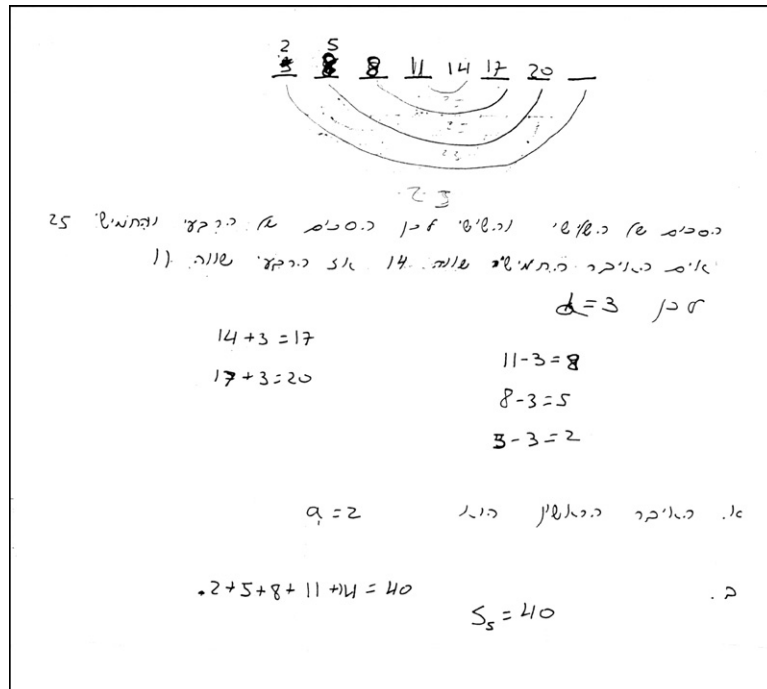 2 5
8 11 14 17 20
25
הסכום של השלישי והשישי לכן הסכום של הרבעי והחמישי 25
אים האיבר החמישי שווה 14 אז הרבעי שווה 11
לכן d=3
14+3=17
11-3=8
17+3=20
8-3=5
5-3=2
א. האיבר הראשון הוא a₁=2
ב. 2+5+8+11+14=40
S₅=40